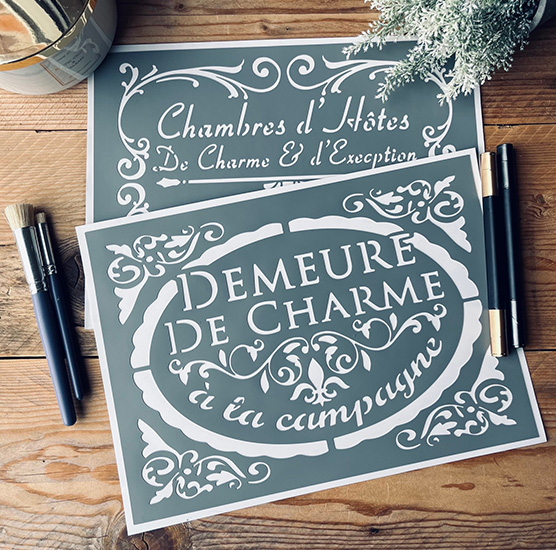 Chambres d'Hôtes
De Charme & d'Execption
DEMEURE
DE CHARME
à la campagne